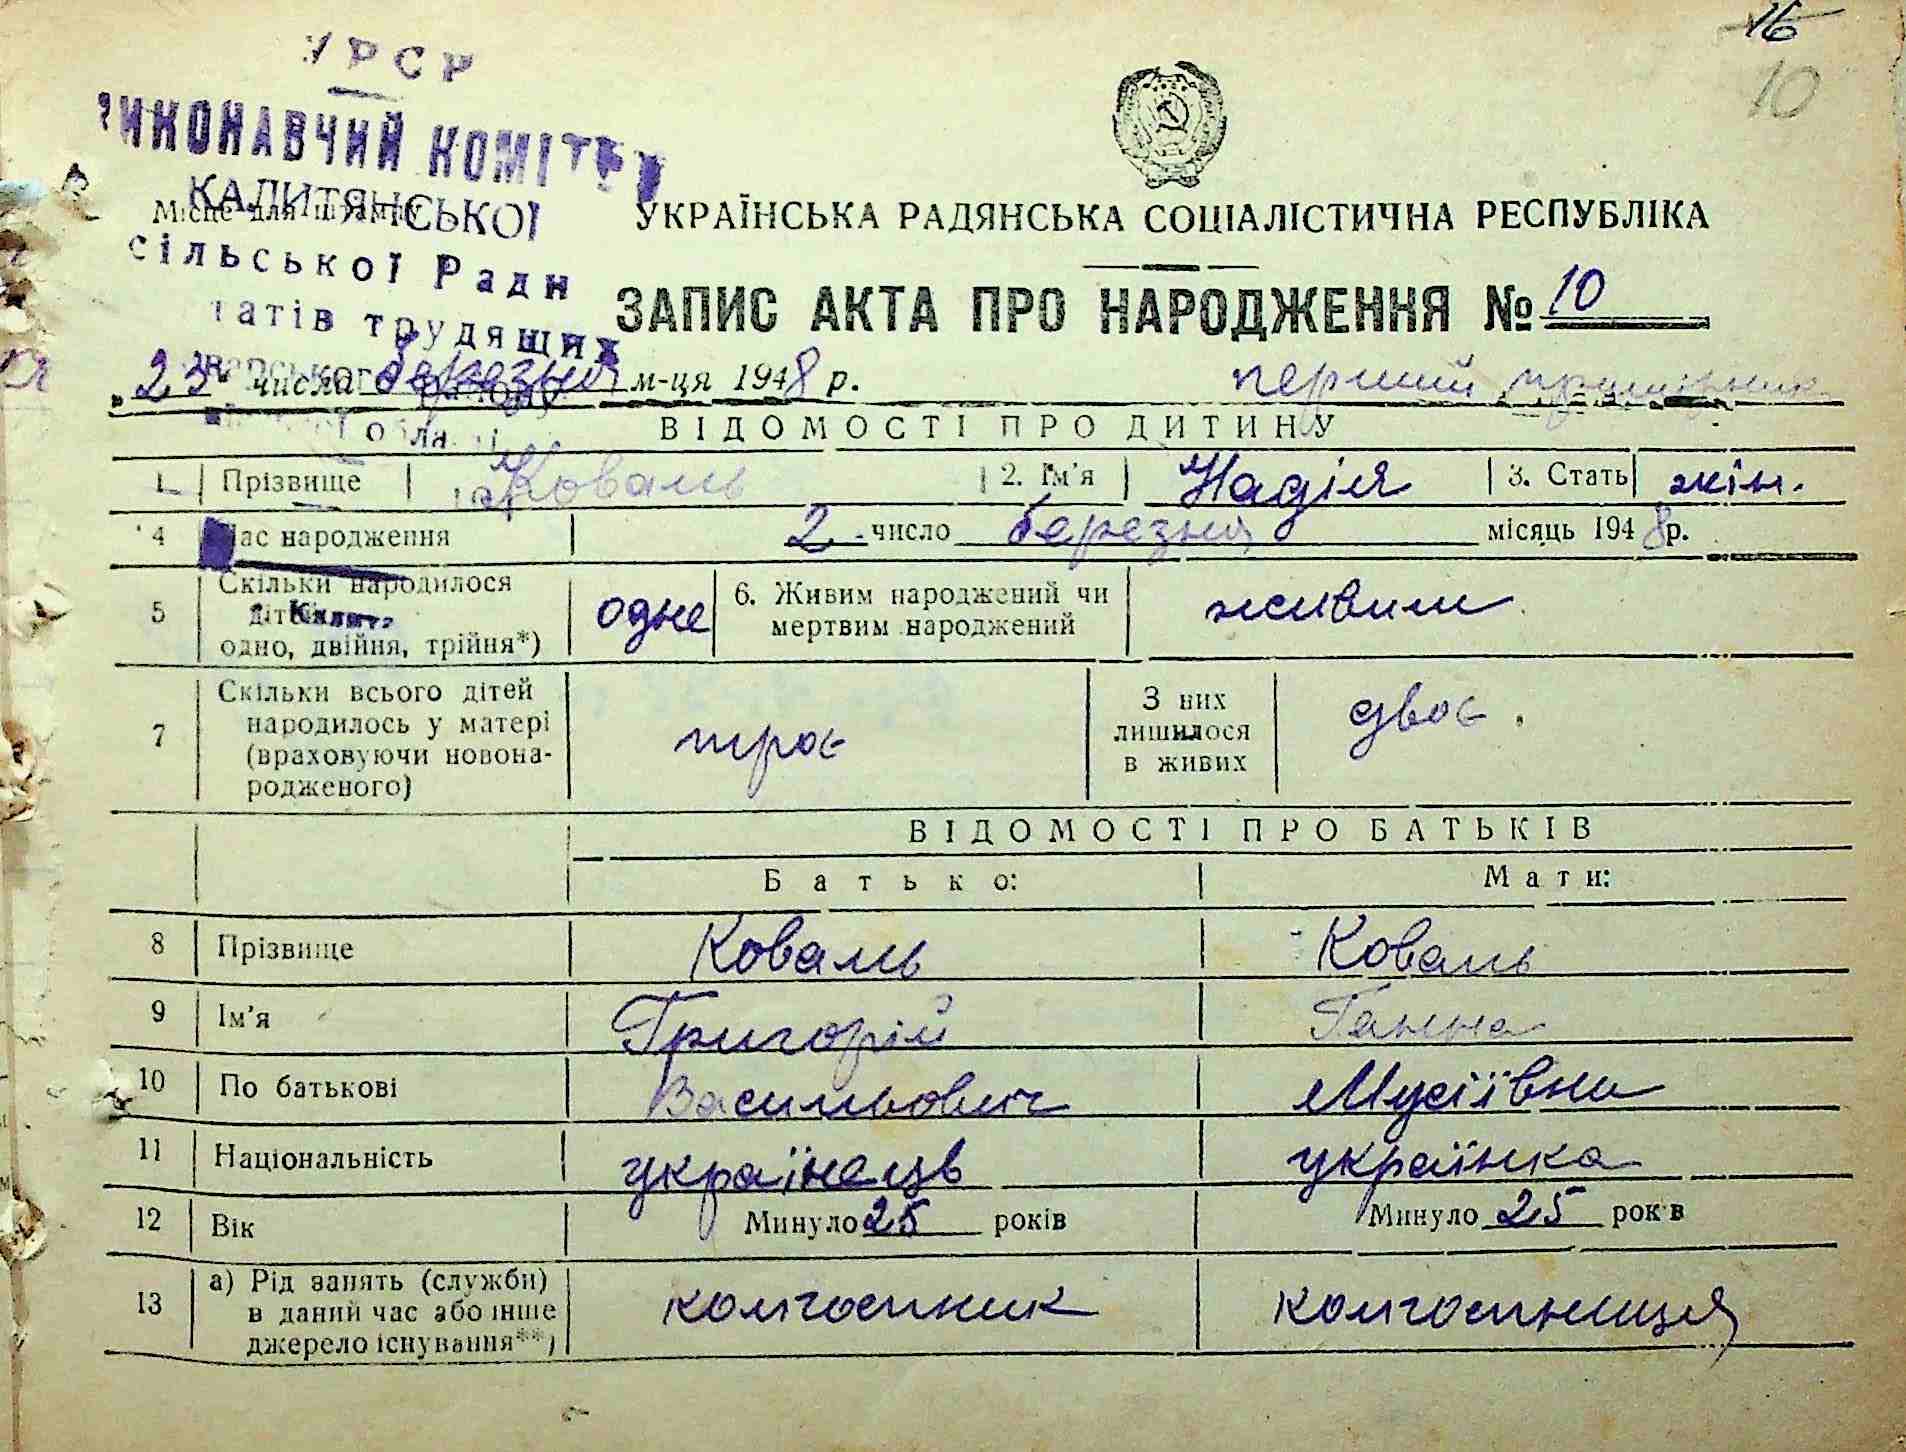 16
10
УРСР
ВИКОНАВЧИЙ КОМІТЕТ
КАЛИТЯНСЬКОЇ
Місце для штампу
сільської Ради
татів трудящих
УКРАЇНСЬКА РАДЯНСЬКА СОЦІАЛІСТИЧНА РЕСПУБЛІКА
ЗАПИС АКТА ПРО НАРОДЖЕННЯ № 10
„23" числа березня м-ця 1948 р. перший примірник
ВІДОМОСТІ ПРО ДИТИНУ
1 Прізвище Коваль 2. Ім'я Надія 3. Стать жін.
4 Час народження 2 число березня місяць 1948 р.
5 Скільки народилося дітей: одно, двійня, трійня*) одне 6. Живим народжений чи мертвим народжений живим
7 Скільки всього дітей народилось у матері (враховуючи новонародженого) троє З них лишилося в живих двоє.
ВІДОМОСТІ ПРО БАТЬКІВ
Батько: Мати:
8 Прізвище Коваль Коваль
9 Ім'я Григорій Ганна
10 По батькові Васильович Мусіївна
11 Національність українець українка
12 Вік Минуло 25 років Минуло 25 років
13 а) Рід занять (служби) в даний час або інше джерело існування**) колгоспник колгоспниця